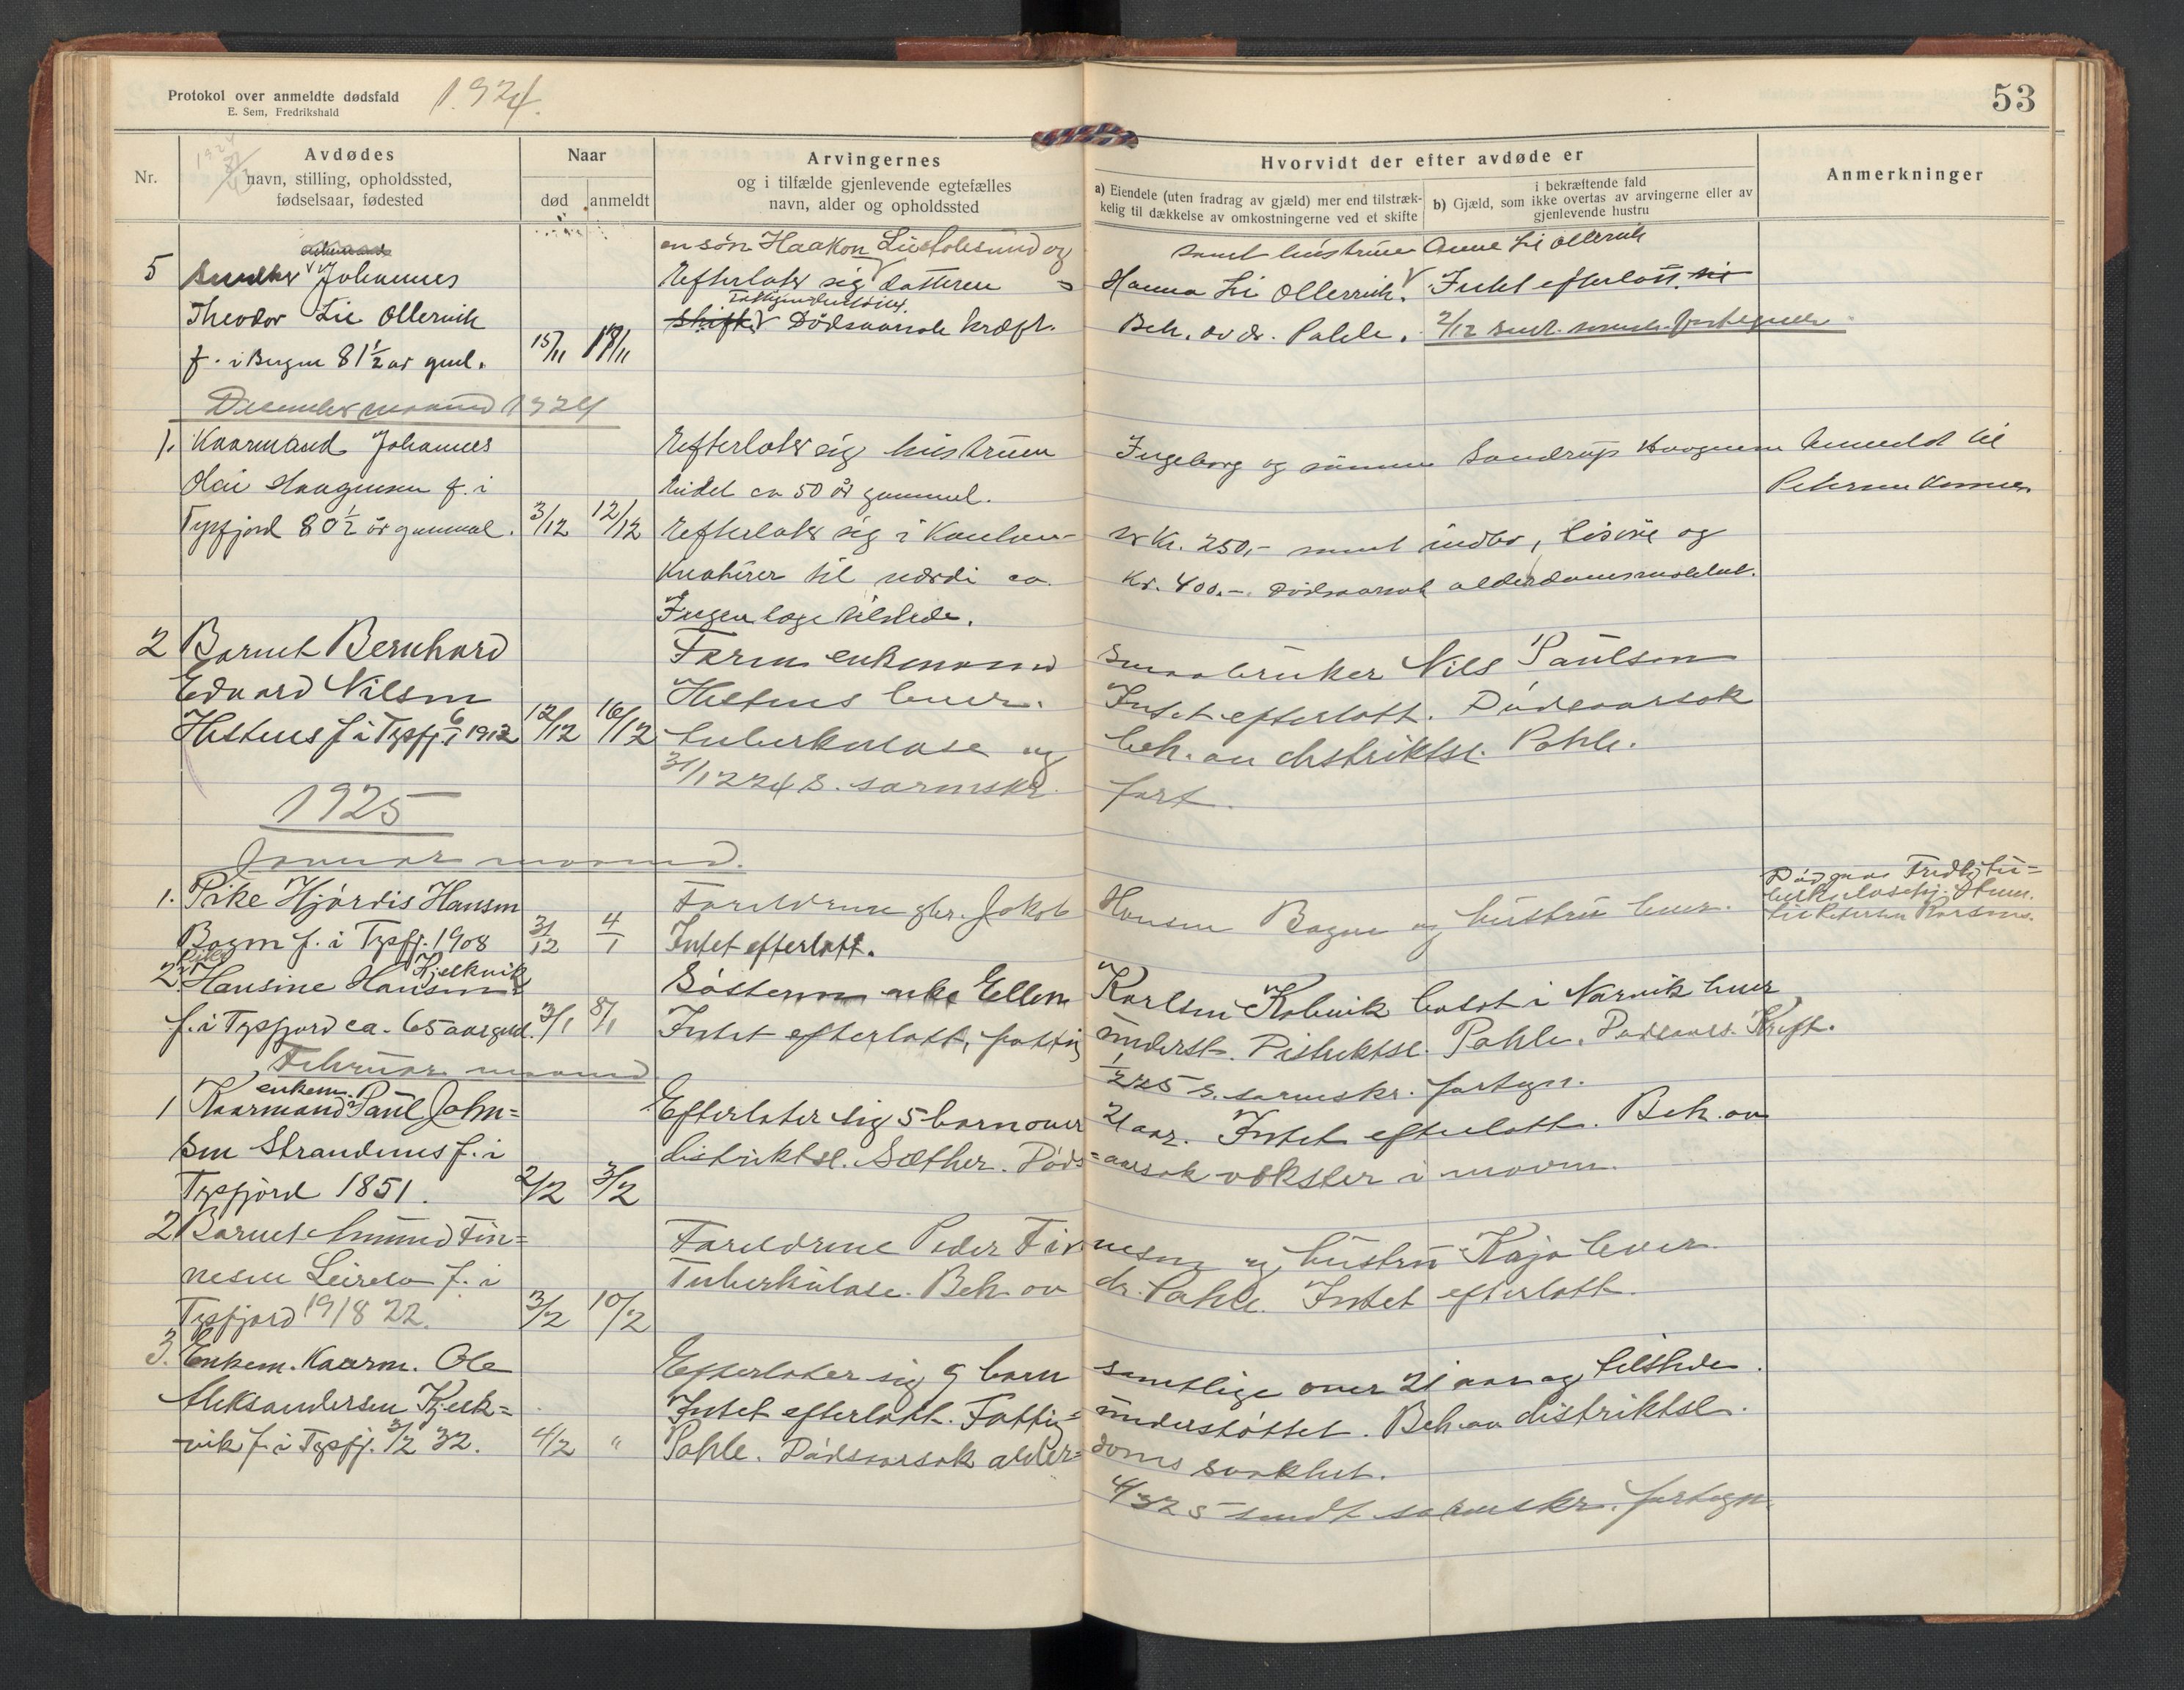 Protokol over anmeldte dødsfald
E. Sem, Fredrikshald
1924.
53
Nr.
Avdødes
navn, stilling, opholdssted,
fødselsaar, fødested
Naar
død
anmeldt
Arvingernes
og i tilfælde gjenlevende egtefælles
navn, alder og opholdssted
Hvorvidt der efter avdøde er
a) Eiendele (uten fradrag av gjæld) mer end tilstræk-
kelig til dækkelse av omkostningerne ved et skifte
i bekræftende fald
b) Gjæld, som ikke overtas av arvingerne eller av
gjenlevende hustru
Anmerkninger
en søn Haakon Lie og samt hustruen Anne Lie Ollernik
5 Johannes Efterlater sig datteren Hanna Lie Ollernik. Intet efterlatt
Theodor Lie Ollernik Skifte Dødsaarsak kræft. Beh. av dr. Pahle. 2/12
f. i 81 1/2 aar gml. 15/11 18/11
December maaned 1924
1. Kaarmand Johannes Efterlater sig hustruen Ingeborg og sønnen Haagensen Anmeldt til
Haagensen f. i ca 50 år gammel. Petersen
Tysfjord 80 1/2 år gammel. 3/12 12/12 Efterlater sig i kr. 250,- samt indbo, og
til værdi ca. Kr. 400.- Dødsaarsak
Ingen læge tilstede.
2 Barnet Bernhard Faren enkemand smaabruker Nils Paulsen
Edvard Nilsen Hestnes lever. Intet efterlatt. Dødsaarsak
Hestnes f. i Tysfj. 6/1 1912 12/12 16/12 tuberkulose og beh. av distriktsl. Pahle.
31/12 24 S. sorenskr. fort.
1925
Januar maaned.
1. Pike Hjørdis Hansen Forældrene gbr. Jakob Hansen Bogen og hustru lever.
Bogen f. i Tysfj. 1908 31/12 4/1 Intet efterlatt.
2. Pike Hansine Hansen Kjelkvik Søsteren enke Ellen Karlsen Kolvik bosat i Narvik lever
f. i Tysfjord ca. 65 aar gml. 3/1 8/1 Intet efterlatt, fattig underst. Distriktsl. Pahle. Dødsaars. Kreft.
Februar maaned 1/2 25 S. sorenskr. fortegn.
1 enkem. Kaarmand Paul John= Efterlater sig 5 barn over 21 aar. Intet efterlatt. Beh. av
sen Strandenes f. i distriktsl. Sæther. Døds=aarsak vekster i maven.
Tysfjord 1851. 2/2 3/2
2 Barnet Amund Fin= Forældrene Peder Finnesen og hustru Kaja lever.
nesen f. i Tuberkulose. Beh. av dr. Pahle. Intet efterlatt.
Tysfjord 19/8 22. 3/2 10/2
3. Enkem. Kaarm. Ole Efterlater sig 9 barn samtlige over 21 aar og tilstede.
Aleksandersen Kjelk= Intet efterlatt. Fattig= understøttet. Beh. av distriktsl.
vik f. i Tysfj. 3/2 32. 4/2 " Pahle. Dødsaarsak alder= doms svakhet.
4/3 25 sendt sorenskr. fortegn.